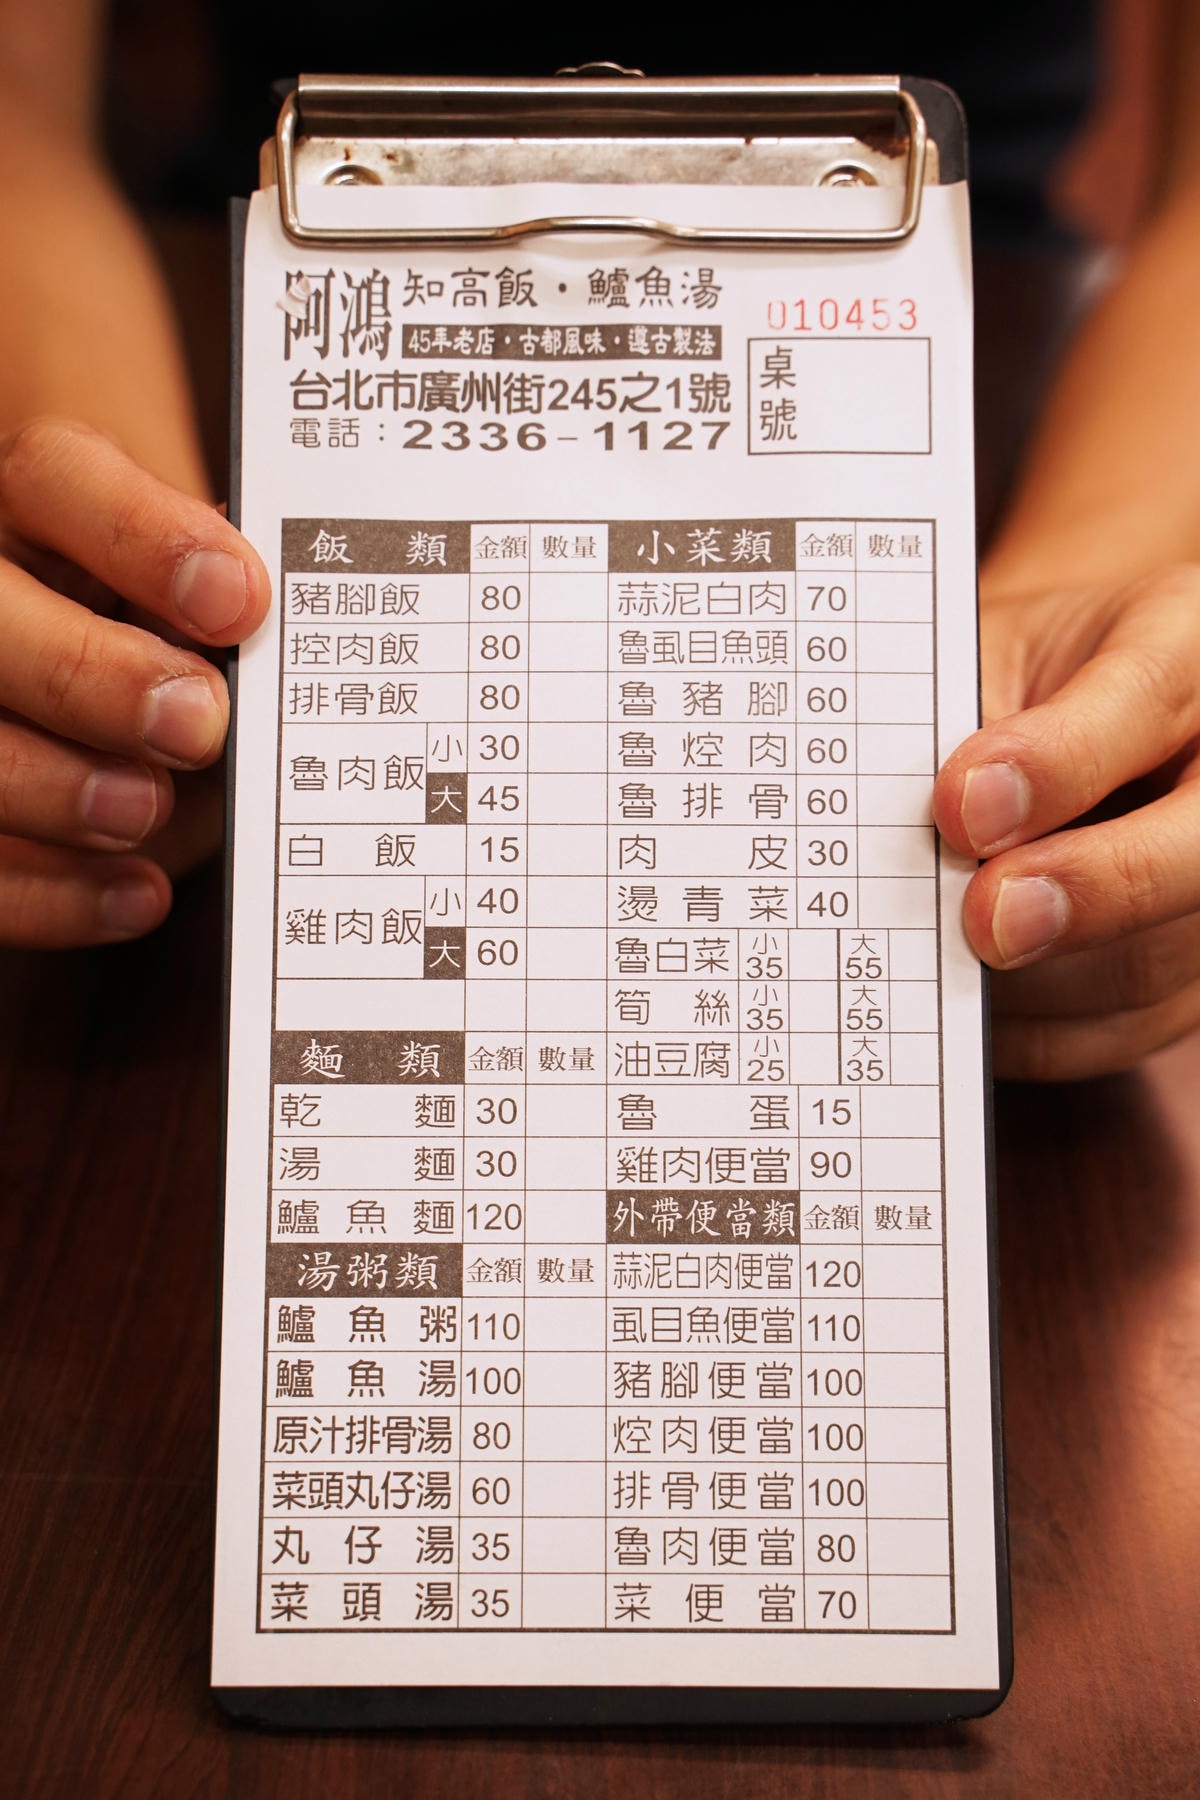 阿鴻 知高飯·鱸魚湯
45年老店·古都風味·遵古製法
台北市廣州街245之1號
電話：2336-1127
010453
桌號
飯類 金額 數量
豬腳飯 80
控肉飯 80
排骨飯 80
魯肉飯 小 30
大 45
白飯 15
雞肉飯 小 40
大 60
麵類 金額 數量
乾麵 30
湯麵 30
鱸魚麵 120
湯粥類 金額 數量
鱸魚粥 110
鱸魚湯 100
原汁排骨湯 80
菜頭丸仔湯 60
丸仔湯 35
菜頭湯 35
小菜類 金額 數量
蒜泥白肉 70
魯虱目魚頭 60
魯豬腳 60
魯焢肉 60
魯排骨 60
肉皮 30
燙青菜 40
魯白菜 小 35 大 55
筍絲 小 35 大 55
油豆腐 小 25 大 35
魯蛋 15
雞肉便當 90
外帶便當類 金額 數量
蒜泥白肉便當 120
虱目魚便當 110
豬腳便當 100
焢肉便當 100
排骨便當 100
魯肉便當 80
菜便當 70